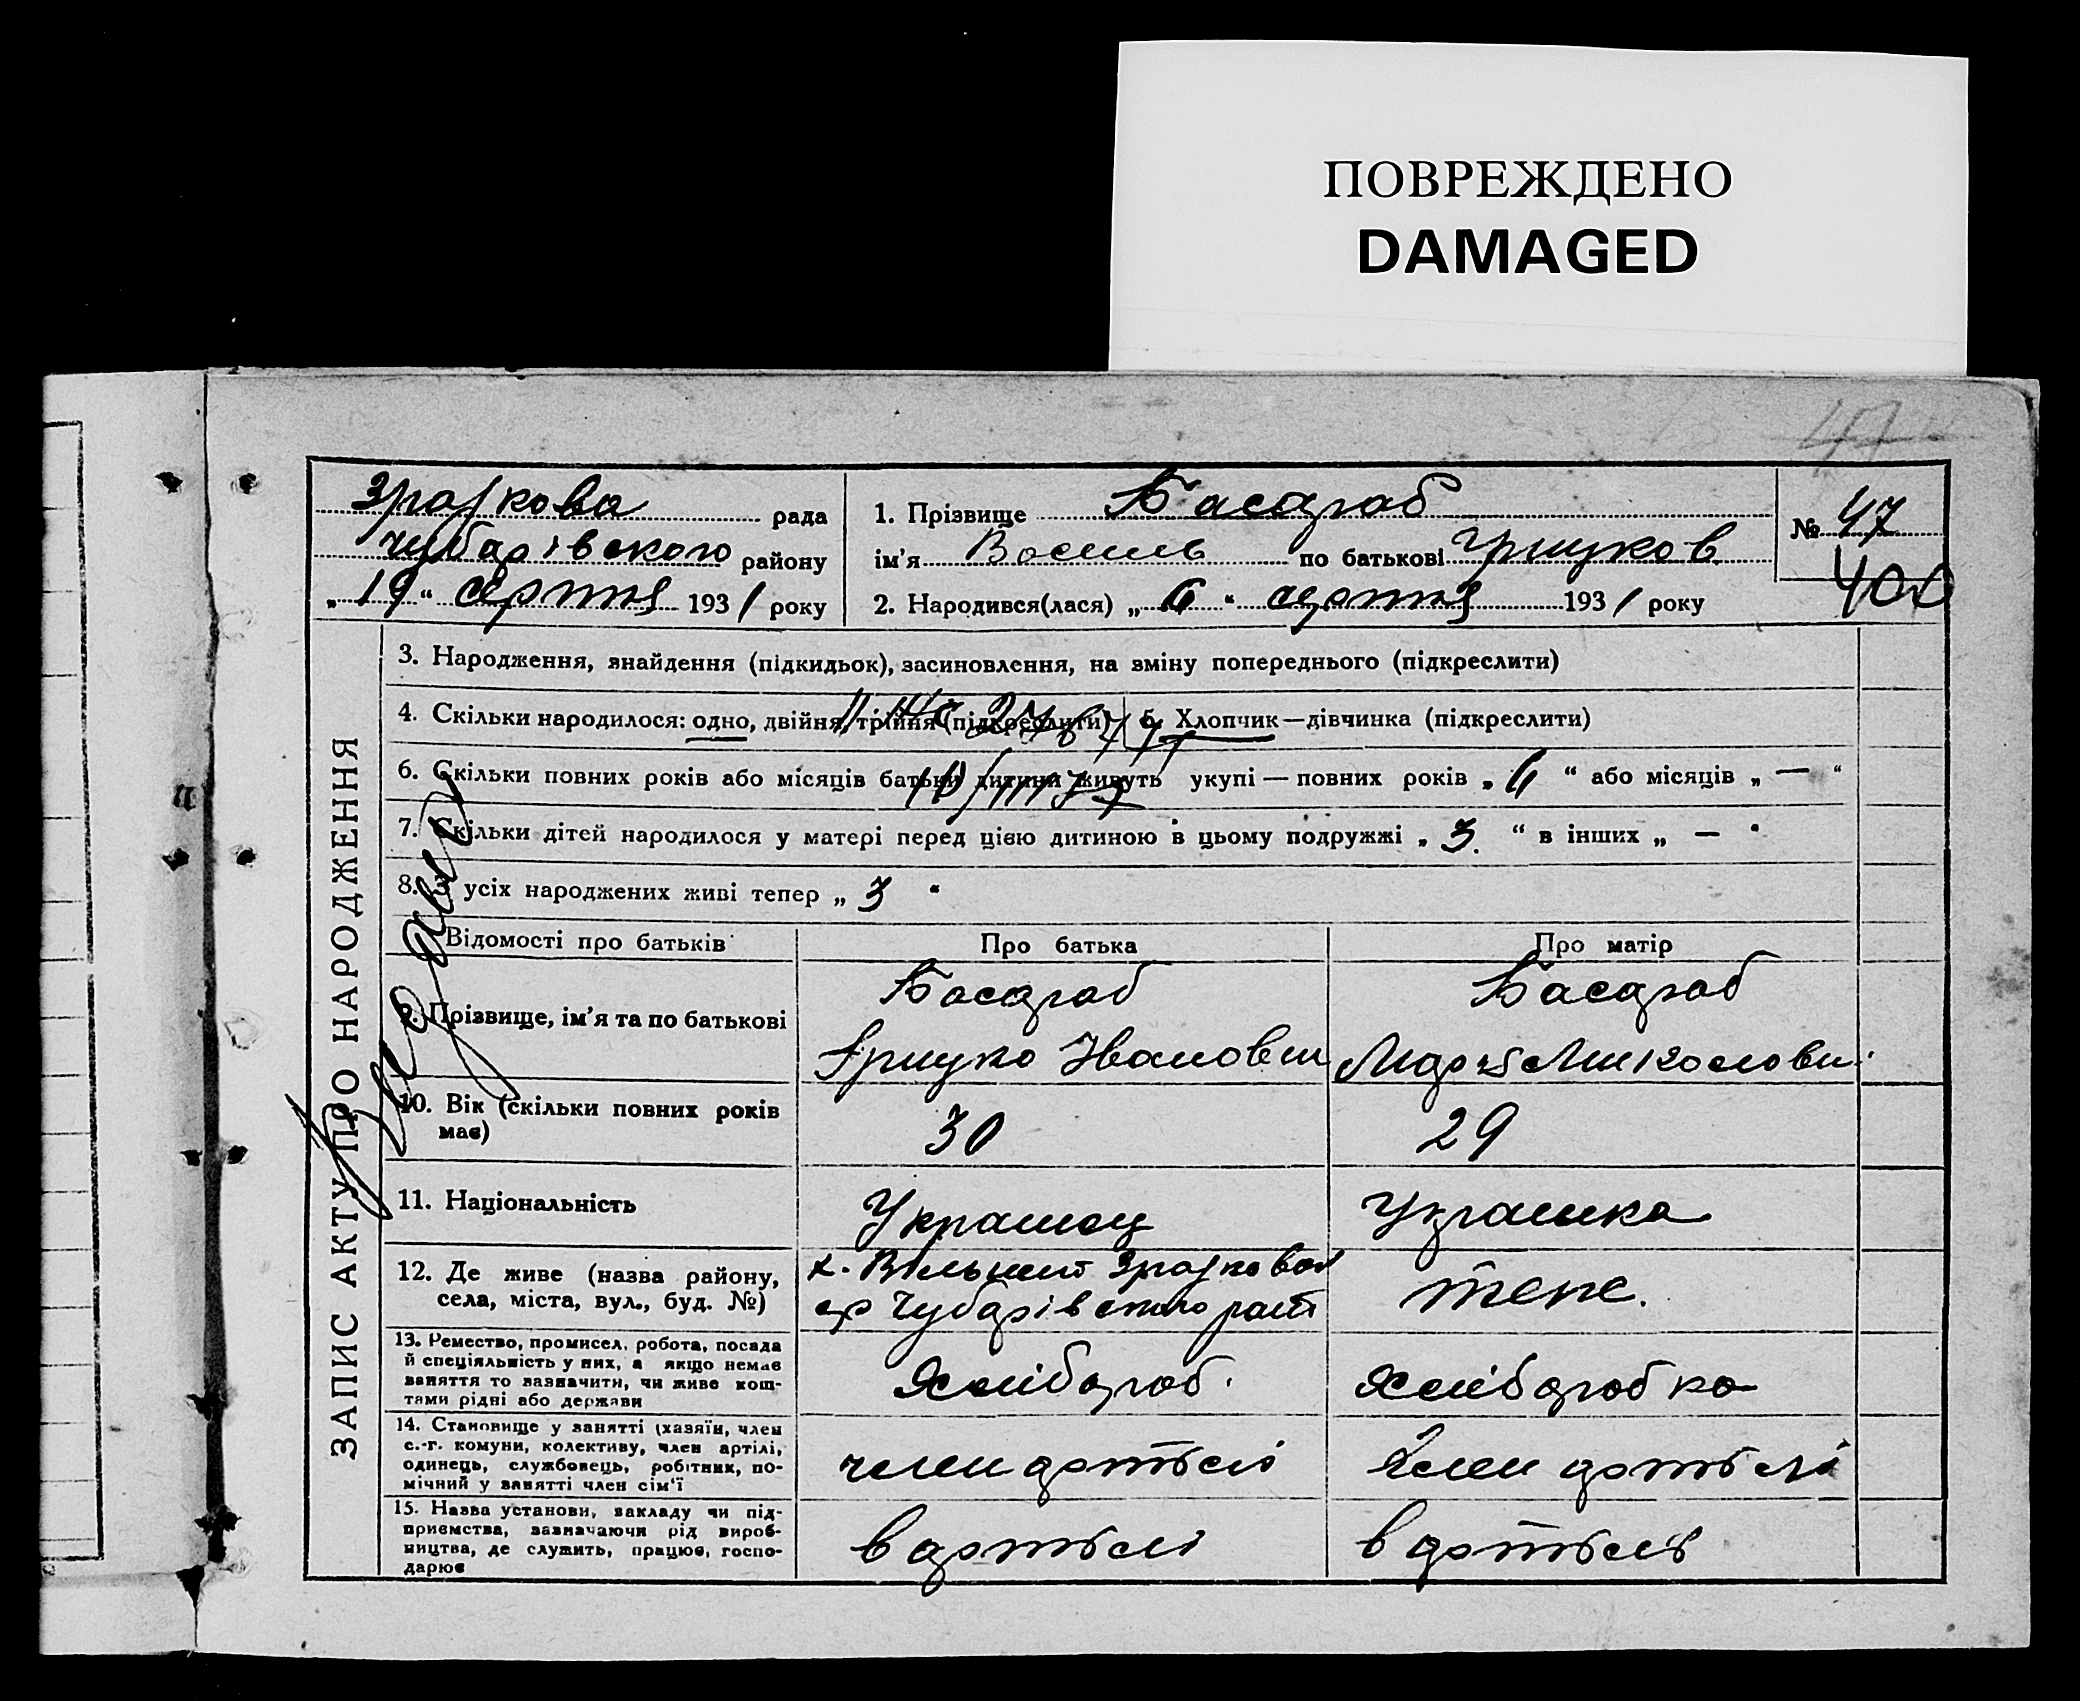 ПОВРЕЖДЕНО
DAMAGED
47
Зразкова рада
Чубарівського району
„19“ серпня 1931 року
1. Прізвище Басараб
ім'я Василь по батькові Грицков.
2. Народився(лася) „6“ серпня 1931 року
№ 47
400
ЗАПИС АКТУ ПРО НАРОДЖЕННЯ
3. Народження, знайдення (підкидьок), засиновлення, на зміну попереднього (підкреслити)
4. Скільки народилося: одно, двійня, трійня (підкреслити)
5. Хлопчик—дівчинка (підкреслити)
6. Скільки повних років або місяців батьки дитини живуть укупі — повних років „6“ або місяців „—“
7. Скільки дітей народилося у матері перед цією дитиною в цьому подружжі „3.“ в інших „—“
8. З усіх народжених живі тепер „3“
Відомості про батьків
Про батька
Про матір
9. Прізвище, ім'я та по батькові
Басараб
Грицко Іванович
Басараб
Миколовн.
10. Вік (скільки повних років
має)
30
29
11. Національність
Українец
Українка
12. Де живе (назва району,
села, міста, вул., буд. №)
х. Вільний Зразковой
ср Чубарівского рай
теж.
13. Ремество, промисел, робота, посада
й спеціяльність у них, а якщо немає
заняття то зазначити, чи живе кош-
тами рідні або держави
Хлібороб.
Хліборобка
14. Становище у занятті (хазяїн, член
с.-г. комуни, колективу, член артілі,
одинець, службовець, робітник, по-
мічний у занятті член сім'ї
член артілі
член артілі
15. Назва установи, закладу чи під-
приємства, зазначаючи рід вироб-
ництва, де служить, працює, госпо-
дарює
в артілі
в артілі